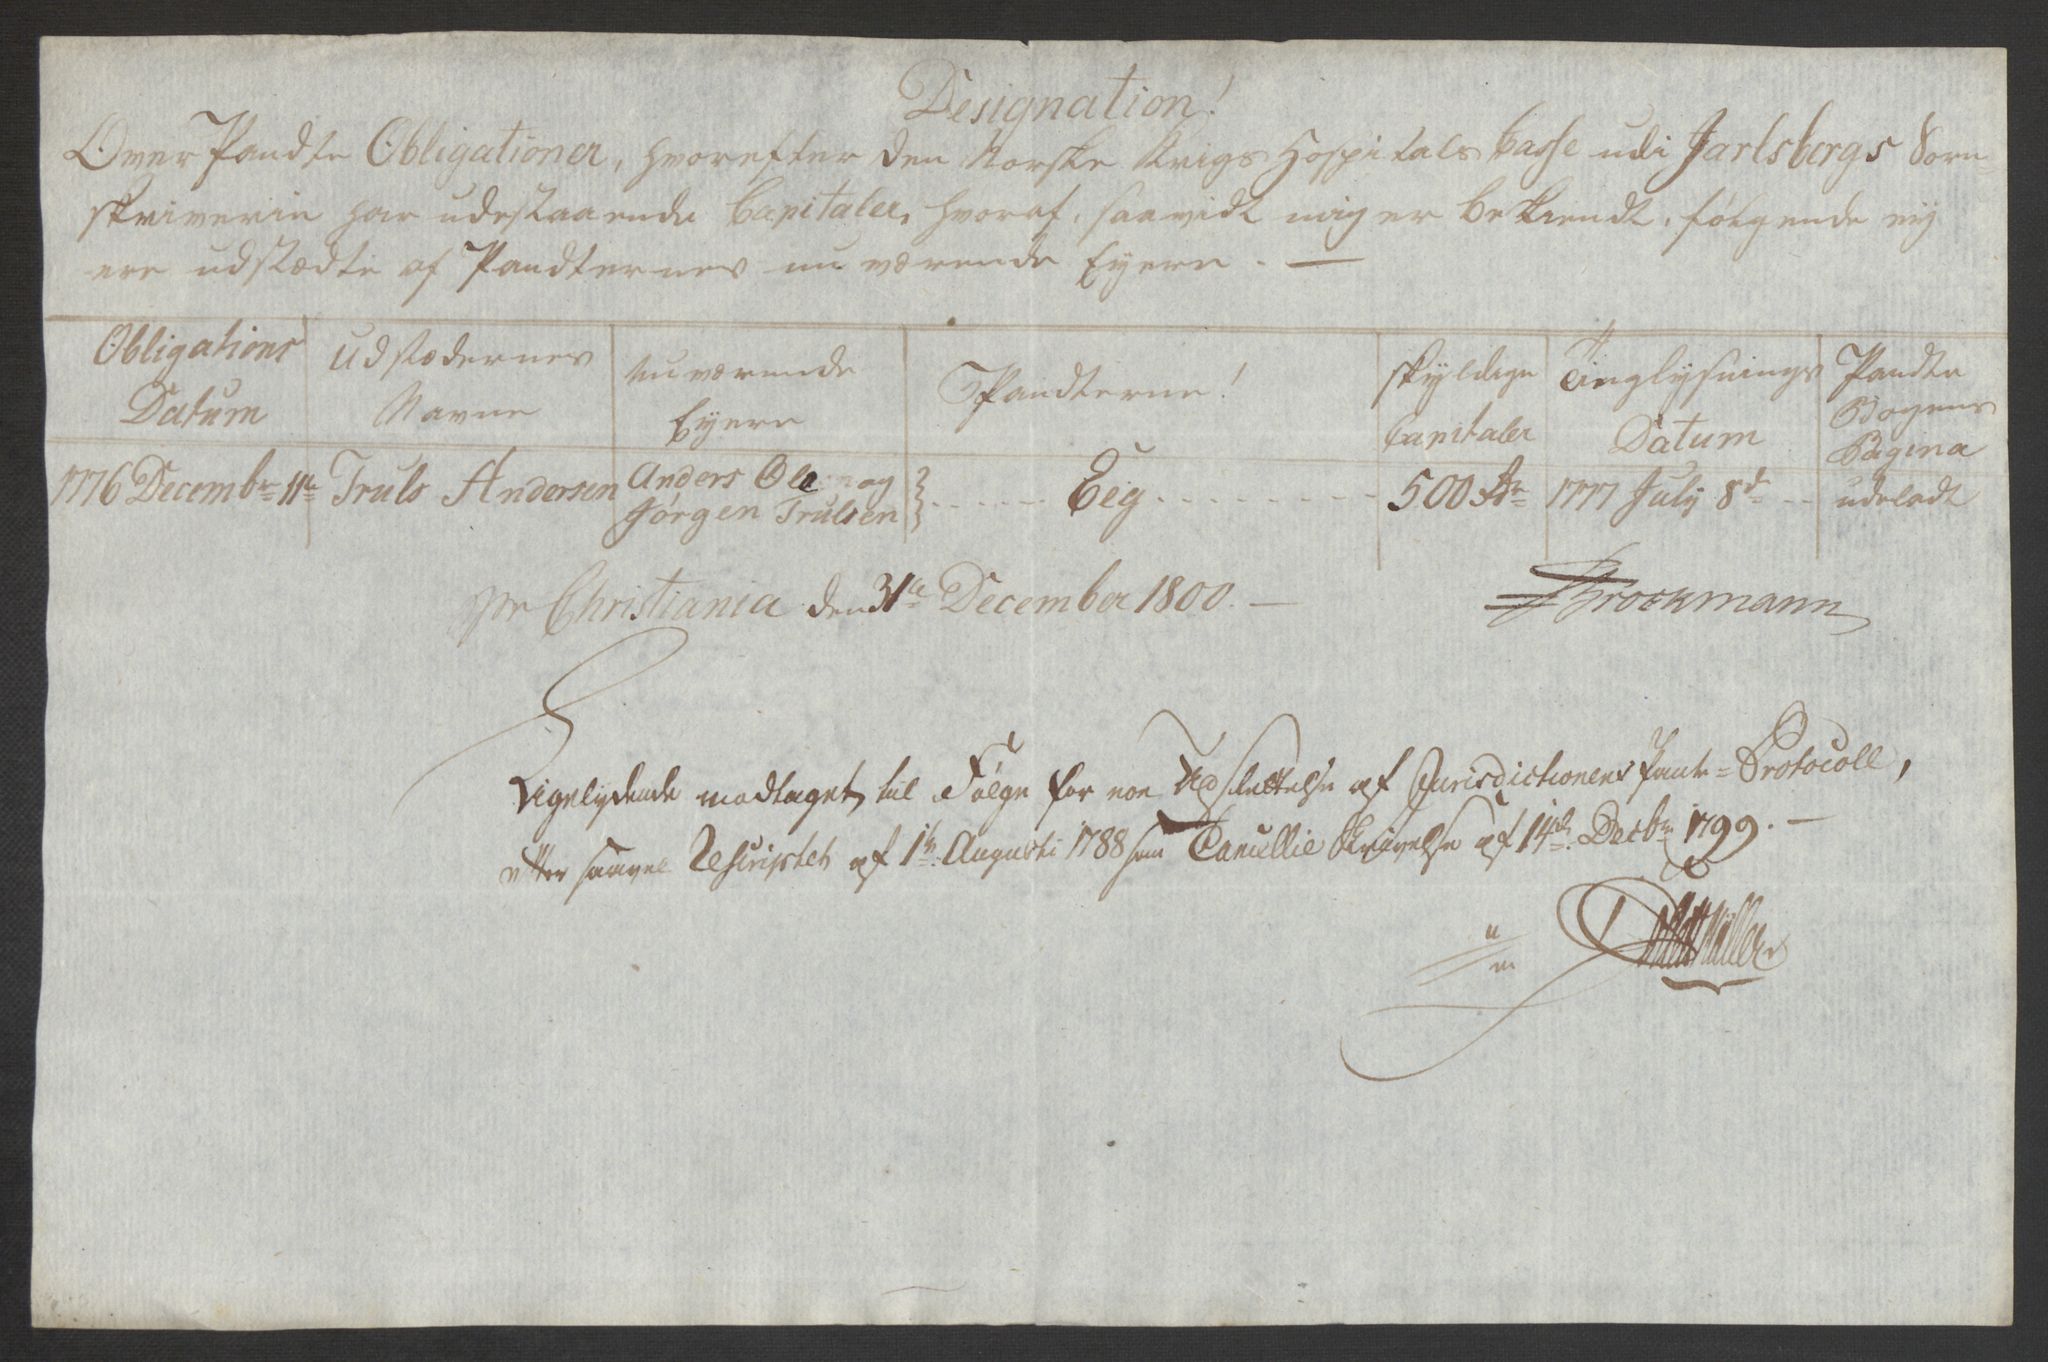 Designation!
Over Pandte Obligationer, hvorefter den Norske Krigs Hospitals Casse udi Jarlsbergs Soren-
skriverie har udestaaende Capitaler, hvoraf, saavidt mig er bekiendt, følgende ej
ere udstædte af Pandternes nu værende Eyere. —
Obligations Datum | Udstædernes Navne | nuværende Eyere | Pandterne! | skyldige Capitaler | Tinglysnings Datum | Pandte Bogens Pagina
1776 Decembr 11te | Truls Andersen | Anders Olsen og Jørgen Trulsen | Eeg | 500 Rdr | 1777 July 8de | udeladt
pr Christiania den 31te December 1800. —
Brockmann
Ligelydende modtaget til Følge for eoe Udslettelse af Jurisdictionens Pante-Protocoll,
efter saavel Rescriptet af 1te Augusti 1788 som Cancellie Skrivelse af 14de Decbr 1799. —
Müller